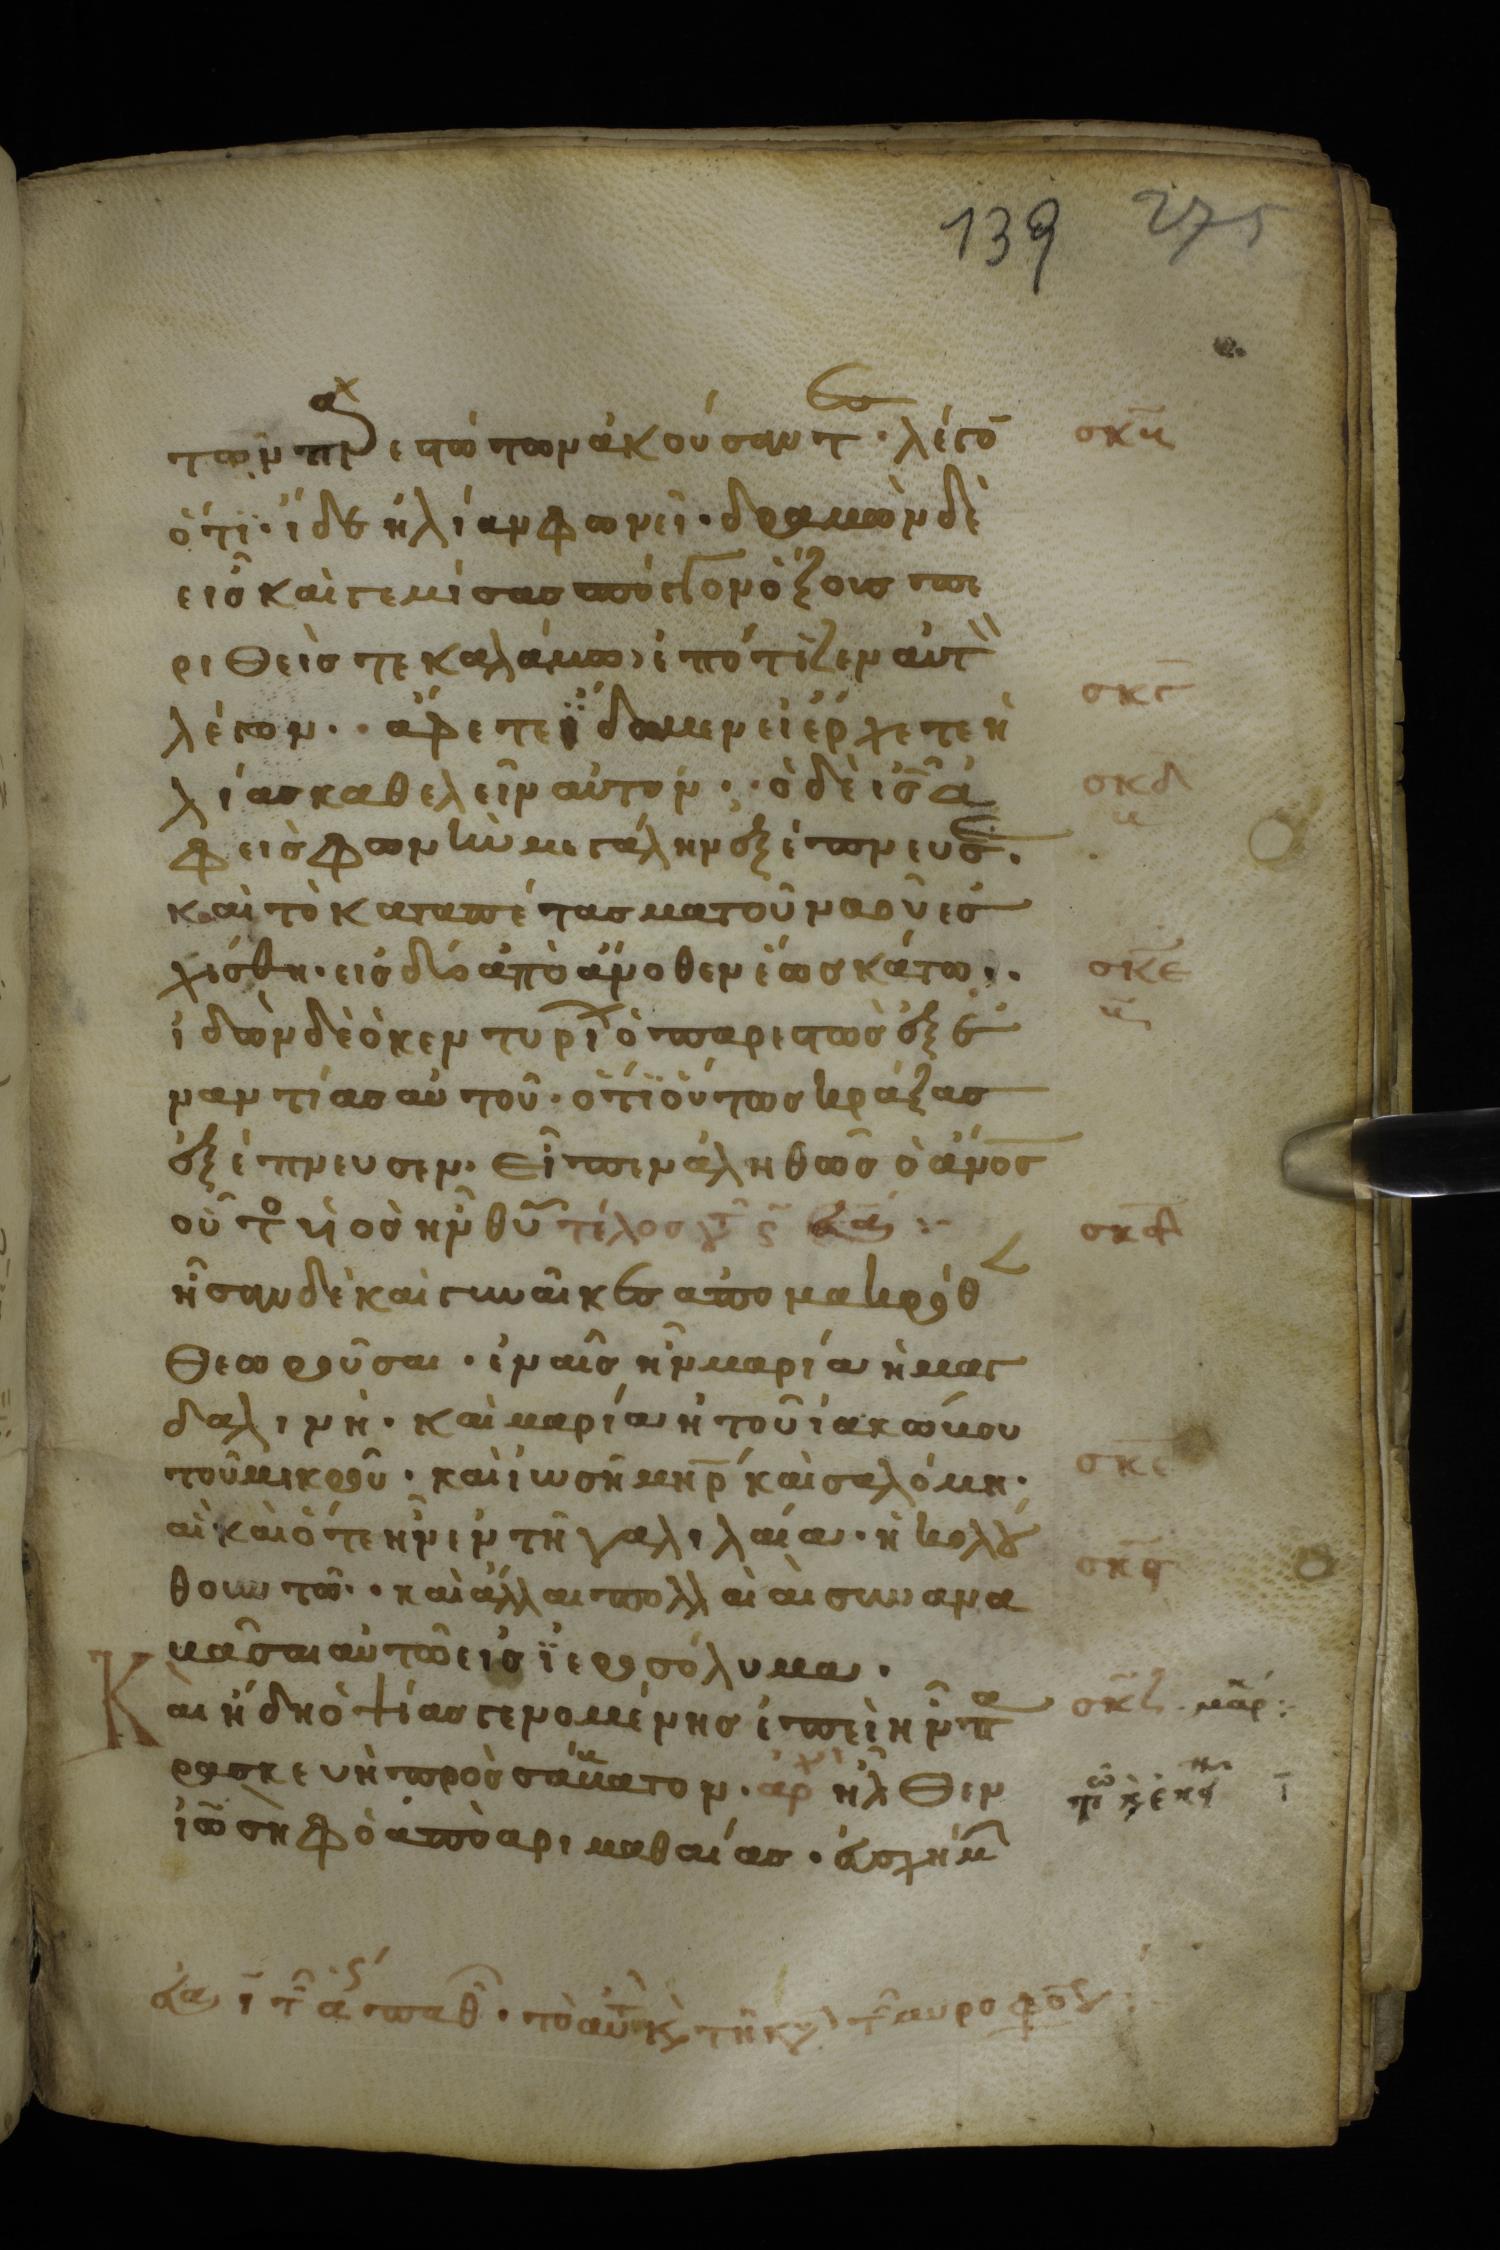 139 275
τῶν παρεστώτων ἀκούσαντες · λέγον σκβ
ὅτι · ἴδε ἠλίαν φωνεῖ · δραμὼν δὲ
εἷς καὶ γεμίσας σπόγγον ὄξους πε
ριθείς τε καλάμω, ἐπότιζεν αὐτὸν
λέγων · · ἄφετε ἴδωμεν εἰ ἔρχετε ἡ σκγ
λίας καθελεῖν αὐτόν · · ὁ δὲ ις ἀ σκδ
φεὶς φωνὴν μεγάλην ἐξέπνευσε ·
καὶ τὸ καταπέτασμα τοῦ ναοῦ ἐσ
χίσθη · εἰς δύο ἀπὸ ἄνοθεν ἕως κάτω · · σκε
ἰδὼν δὲ ὁ κεντυρίων ὁ παρεστὼς ἐξ ἐ
ναντίας αὐτοῦ · ὅτι οὕτως κράξας
ἐξέπνευσεν · εἶπεν ἀληθῶς ὁ ἄνος
οὗτος υἱὸς ἦν θυ τέλος
ἦσαν δὲ καὶ γυναῖκες ἀπομακρόθεν
θεωροῦσαι · ἐν αἷς ἦν μαρία ἡ μαγ
δαλινὴ · καὶ μαρία ἡ τοῦ ἰακώβου
τοῦ μικροῦ · καὶ ἰωσῆ μηρ καὶ σαλόμη ·
αἳ καὶ ὅτε ἦν ἐν τῆ γαλιλαία · ἠκολού
θουν τῶ · · καὶ ἄλλαι πολλαὶ αἱ συνανα
βᾶσαι αὐτῶ εἰς ἱεροσόλυμα ·
Καὶ ἤδη ὀψίας γενομένης ἐπεὶ ἦν πα σκζ
ρασκευὴ πρὸς σάββατον · ἀρχ ἦλθεν
ἰωσὴφ ὁ ἀπὸ ἀριμαθαίας · εὐσχήμων